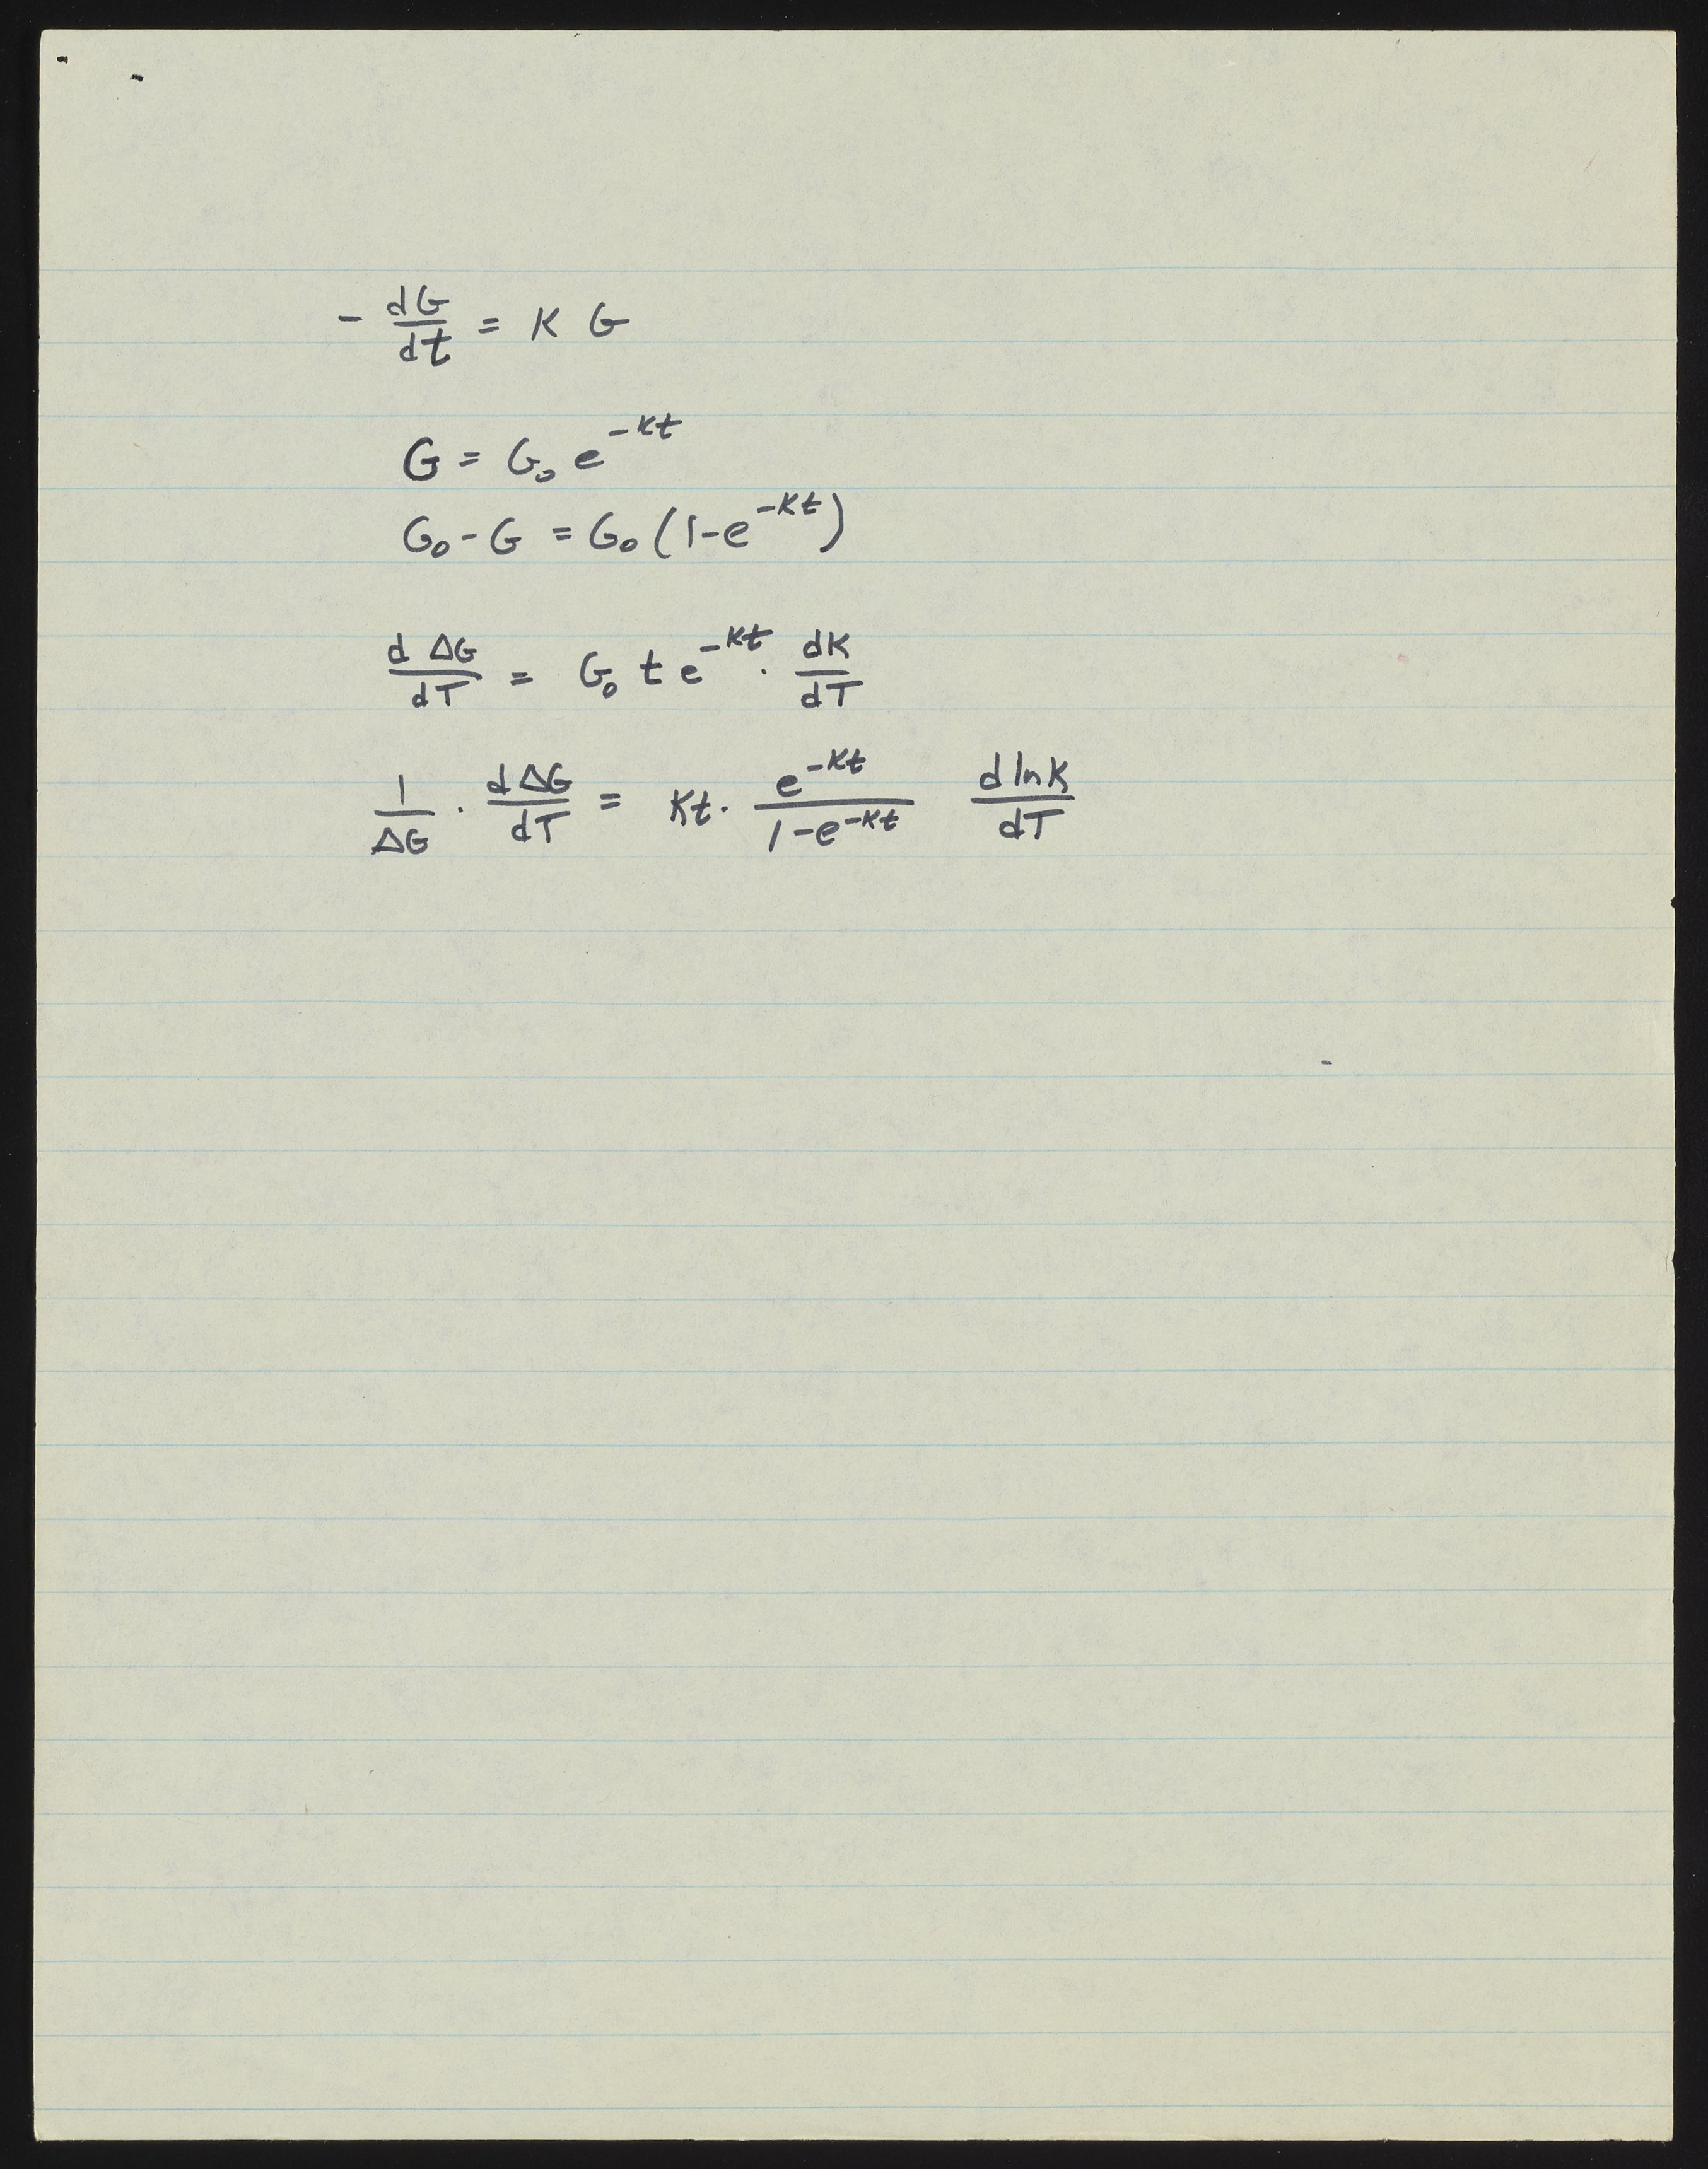 - dG/dt = K G
G = G₀ e^-Kt
G₀ - G = G₀ (1-e^-Kt)
d ΔG/dT = G₀ t e^-Kt · dK/dT
1/ΔG · d ΔG/dT = Kt · e^-Kt/1-e^-Kt d ln K/dT